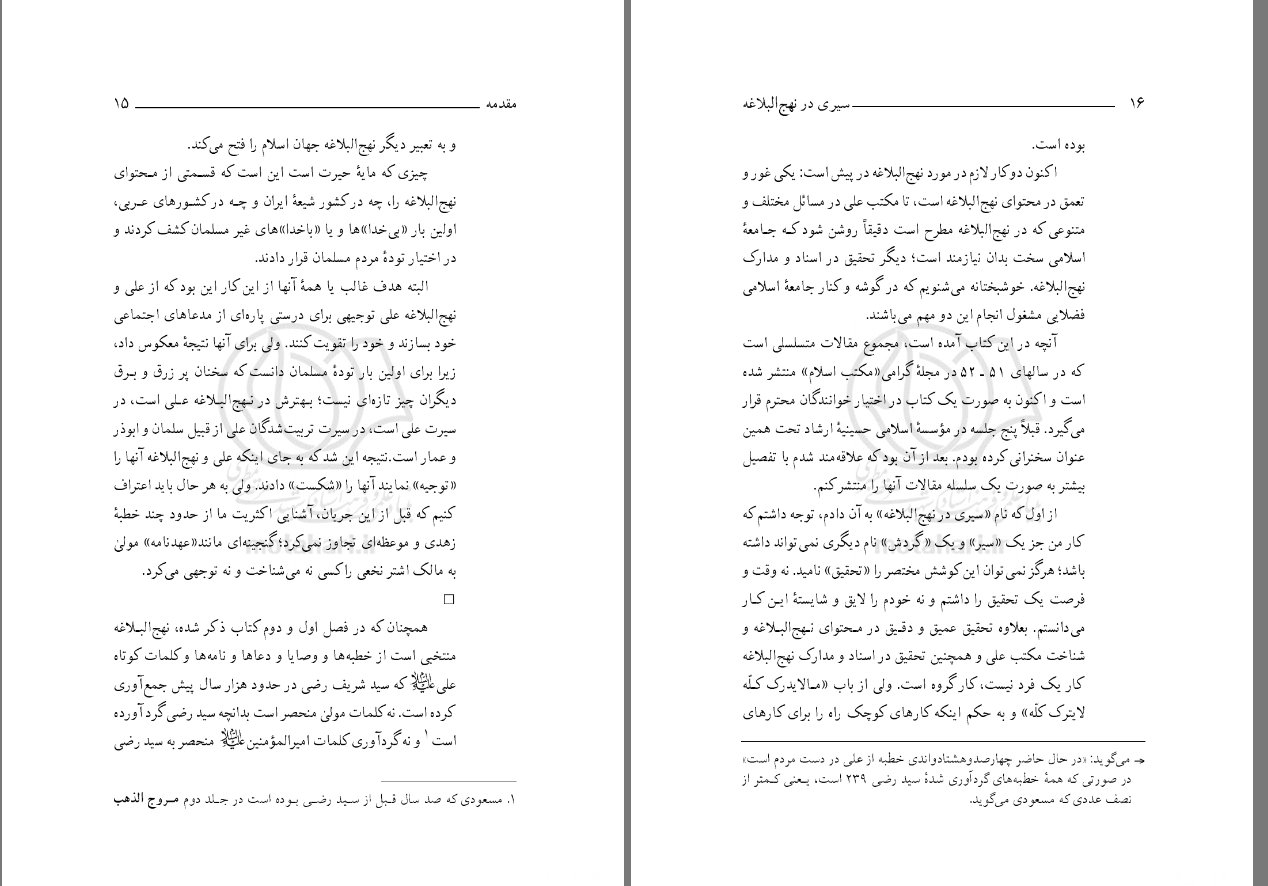 مقدمه ۱۵
و به تعبیر دیگر نهج‌البلاغه جهان اسلام را فتح می‌کند.
چیزی که مایهٔ حیرت است این است که قسمتی از محتوای
نهج‌البلاغه را، چه در کشور شیعهٔ ایران و چه در کشورهای عربی،
اولین بار «بی‌خدا»ها و یا «باخدا»های غیر مسلمان کشف کردند و
در اختیار تودهٔ مردم مسلمان قرار دادند.
البته هدف غالب یا همهٔ آنها از این کار این بود که از علی و
نهج‌البلاغه علی توجیهی برای درستی پاره‌ای از مدعاهای اجتماعی
خود بسازند و خود را تقویت کنند. ولی برای آنها نتیجهٔ معکوس داد،
زیرا برای اولین بار تودهٔ مسلمان دانست که سخنان پر زرق و برق
دیگران چیز تازه‌ای نیست؛ بهترش در نهج‌البلاغه علی است، در
سیرت علی است، در سیرت تربیت‌شدگان علی از قبیل سلمان و ابوذر
و عمار است. نتیجه این شد که به جای اینکه علی و نهج‌البلاغه آنها را
«توجیه» نمایند آنها را «شکست» دادند. ولی به هر حال باید اعتراف
کنیم که قبل از این جریان، آشنایی اکثریت ما از حدود چند خطبهٔ
زهدی و موعظه‌ای تجاوز نمی‌کرد؛ گنجینه‌ای مانند «عهدنامه» مولیٰ
به مالک اشتر نخعی را کسی نه می‌شناخت و نه توجهی می‌کرد.
□
همچنان که در فصل اول و دوم کتاب ذکر شده، نهج‌البلاغه
منتخبی است از خطبه‌ها و وصایا و دعاها و نامه‌ها و کلمات کوتاه
علی علیه‌السلام که سید شریف رضی در حدود هزار سال پیش جمع‌آوری
کرده است. نه کلمات مولیٰ منحصر است بدانچه سید رضی گرد آورده
است ۱ و نه گردآوری کلمات امیرالمؤمنین علیه‌السلام منحصر به سید رضی
۱. مسعودی که صد سال قبل از سید رضی بوده است در جلد دوم مروج الذهب
۱۶ سیری در نهج‌البلاغه
بوده است.
اکنون دو کار لازم در مورد نهج‌البلاغه در پیش است: یکی غور و
تعمق در محتوای نهج‌البلاغه است، تا مکتب علی در مسائل مختلف و
متنوعی که در نهج‌البلاغه مطرح است دقیقاً روشن شود که جامعهٔ
اسلامی سخت بدان نیازمند است؛ دیگر تحقیق در اسناد و مدارک
نهج‌البلاغه. خوشبختانه می‌شنویم که در گوشه و کنار جامعهٔ اسلامی
فضلایی مشغول انجام این دو مهم می‌باشند.
آنچه در این کتاب آمده است، مجموع مقالات متسلسلی است
که در سالهای ۵۱ ـ ۵۲ در مجلهٔ گرامی «مکتب اسلام» منتشر شده
است و اکنون به صورت یک کتاب در اختیار خوانندگان محترم قرار
می‌گیرد. قبلاً پنج جلسه در مؤسسهٔ اسلامی حسینیهٔ ارشاد تحت همین
عنوان سخنرانی کرده بودم. بعد از آن بود که علاقه‌مند شدم با تفصیل
بیشتر به صورت یک سلسله مقالات آنها را منتشر کنم.
از اول که نام «سیری در نهج‌البلاغه» به آن دادم، توجه داشتم که
کار من جز یک «سیر» و یک «گردش» نام دیگری نمی‌تواند داشته
باشد؛ هرگز نمی‌توان این کوشش مختصر را «تحقیق» نامید. نه وقت و
فرصت یک تحقیق را داشتم و نه خودم را لایق و شایستهٔ این کار
می‌دانستم. بعلاوه تحقیق عمیق و دقیق در محتوای نهج‌البلاغه و
شناخت مکتب علی و همچنین تحقیق در اسناد و مدارک نهج‌البلاغه
کار یک فرد نیست، کار گروه است. ولی از باب «مالایدرک کلّه
لایترک کلّه» و به حکم اینکه کارهای کوچک راه را برای کارهای
← می‌گوید: «در حال حاضر چهارصدوهشتادواندی خطبه از علی در دست مردم است»
در صورتی که همهٔ خطبه‌های گردآوری شدهٔ سید رضی ۲۳۹ است، یعنی کمتر از
نصف عددی که مسعودی می‌گوید.
motahari.ir